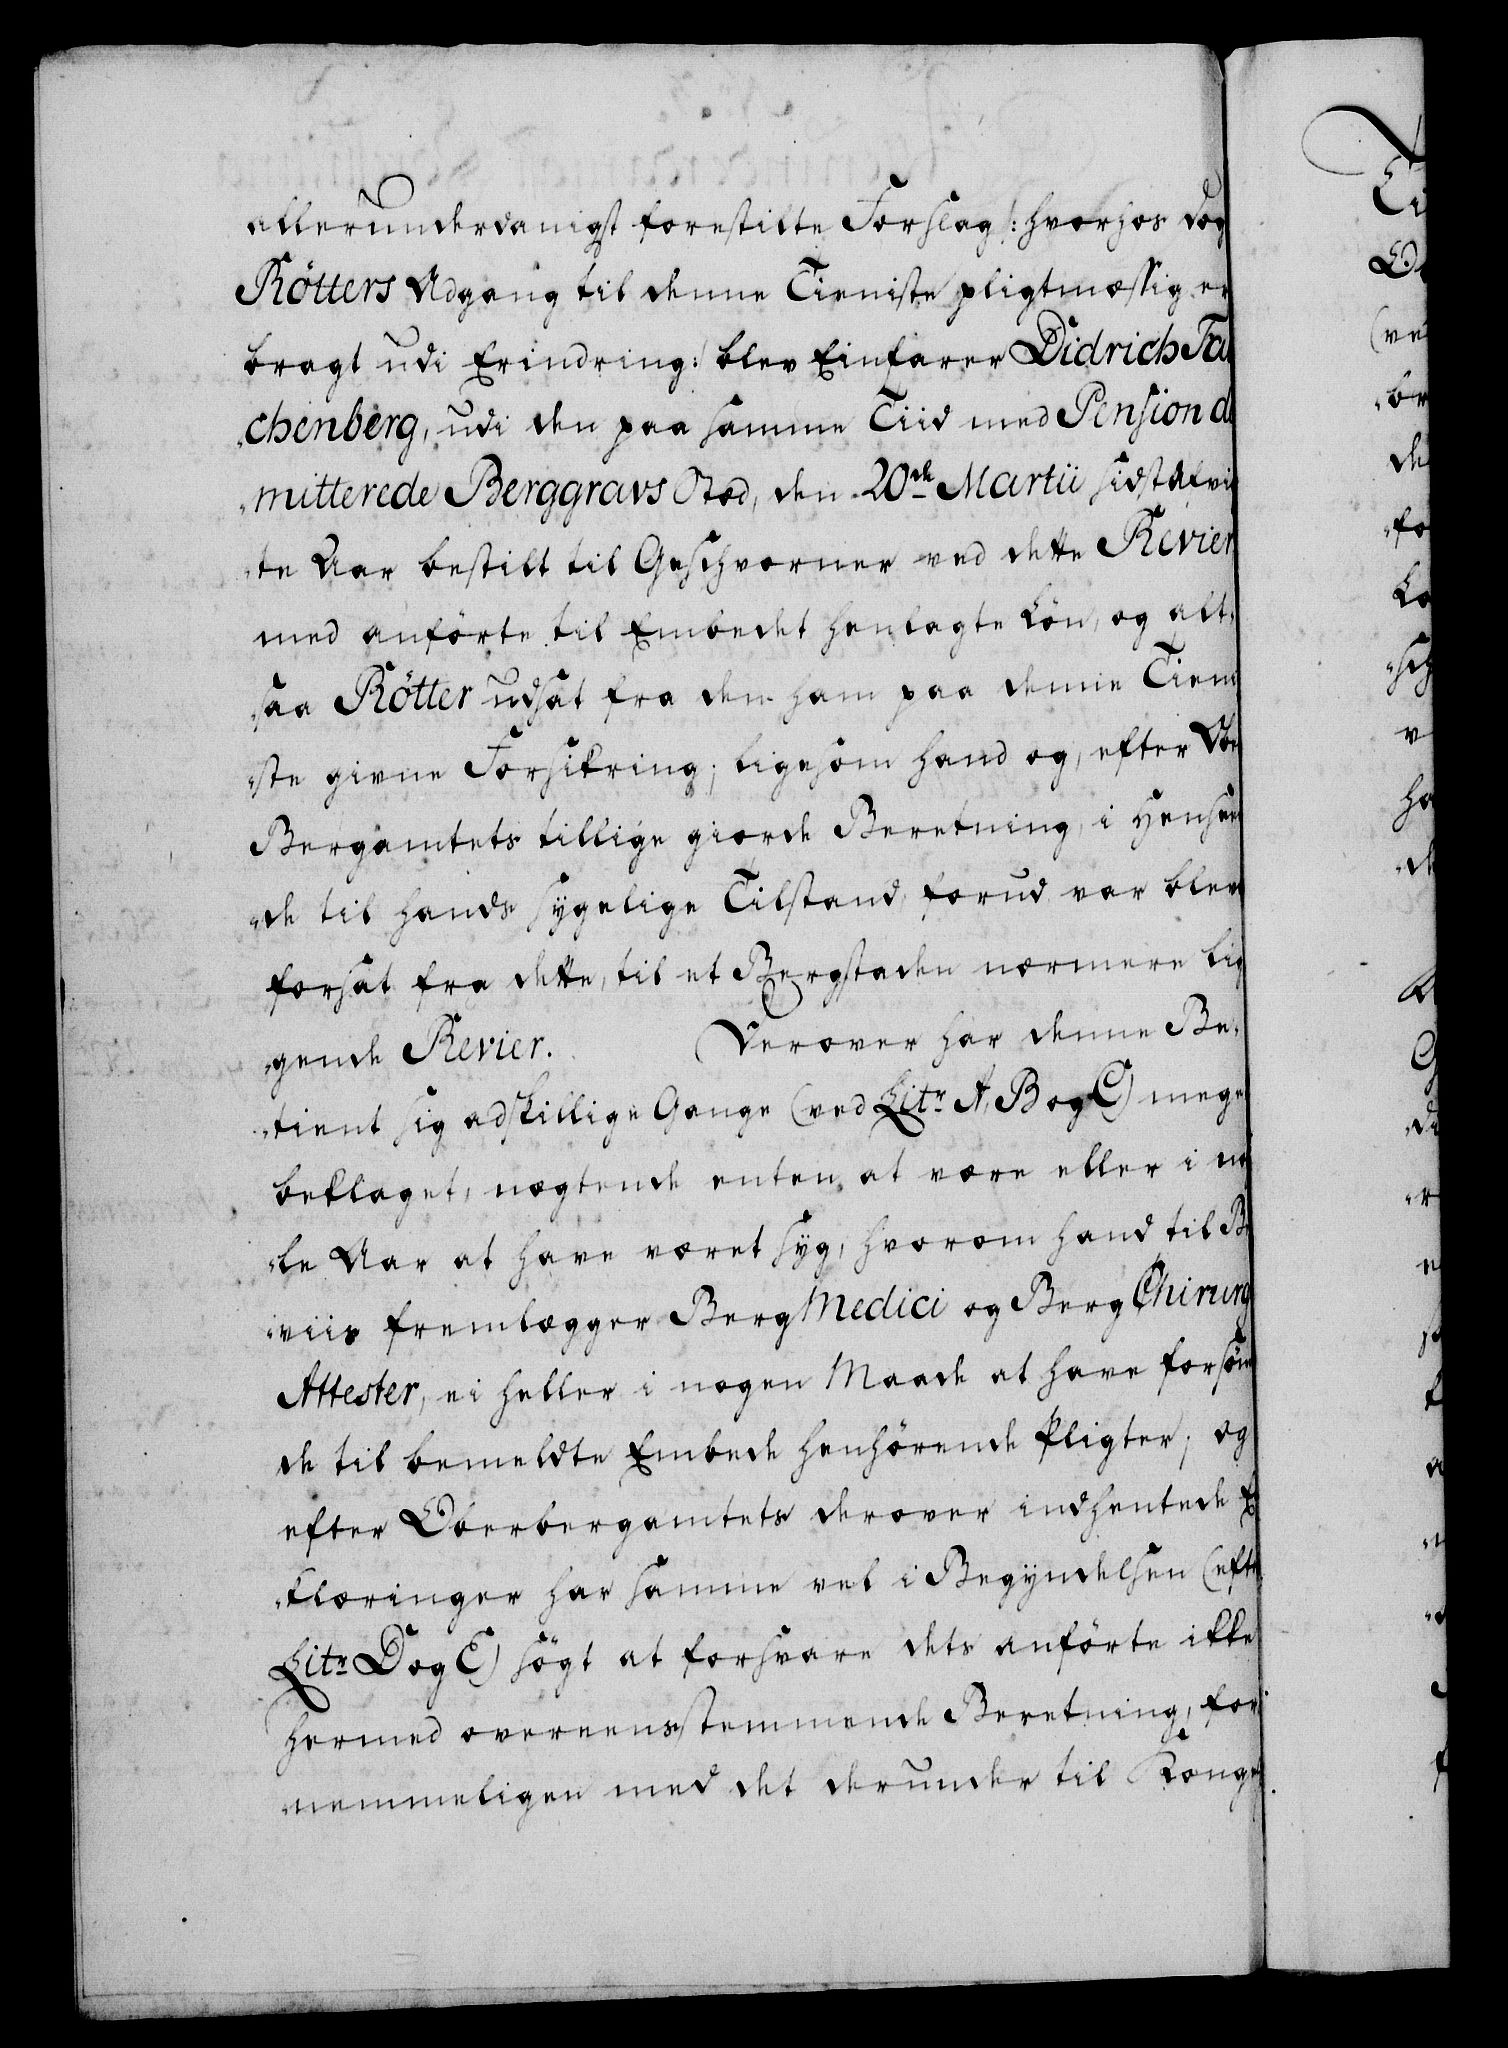 allerunderdanigst forestilte Forslag /: hvorhos dog
Rötters Adgang til denne Tieniste pligtmæssig er
bragt udi Erindring :/ blev Einfarer Didrich Ta
„chenberg, udi den paa samme Tiid med Pension di
„mitterede Berggravs Stæd, den 20de Martii sidstafvi
„te Aar bestilt til Geschvorner ved dette Revier
med anförte til Embedet henlagte Lön, og alt„
„saa Rötter udsat fra den ham paa denne Tieni
„ste givne Forsikring; ligesom hand og, efter Obe
Bergamtets tillige giorde Beretning, i Hensee
„de til hands sygelige Tilstand, forud var blev
forsat fra dette, til et Bergstaden nærmere lig
„gende Revier. Derover har denne Be„
„tient sig adskillige Gange (ved Litr A, B og C) meget
beklaget, nægtende enten at være eller i no
„le Aar at have været syg, hvorom hand til Be
„viis fremlægger Berg Medici og Berg Chirurgi
Attester, ei heller i nogen Maade at have forsöm
de til bemeldte Embede henhörende Pligter; og
efter Oberbergamtets derover indhentede Er
„klæringer har samme vel i Begyndelsen (efter
Litr D og E) sögt at forsvare dets anförte ikke
hermed overeensstemmende Beretning, for
„nemmeligen med det derunder til Konge